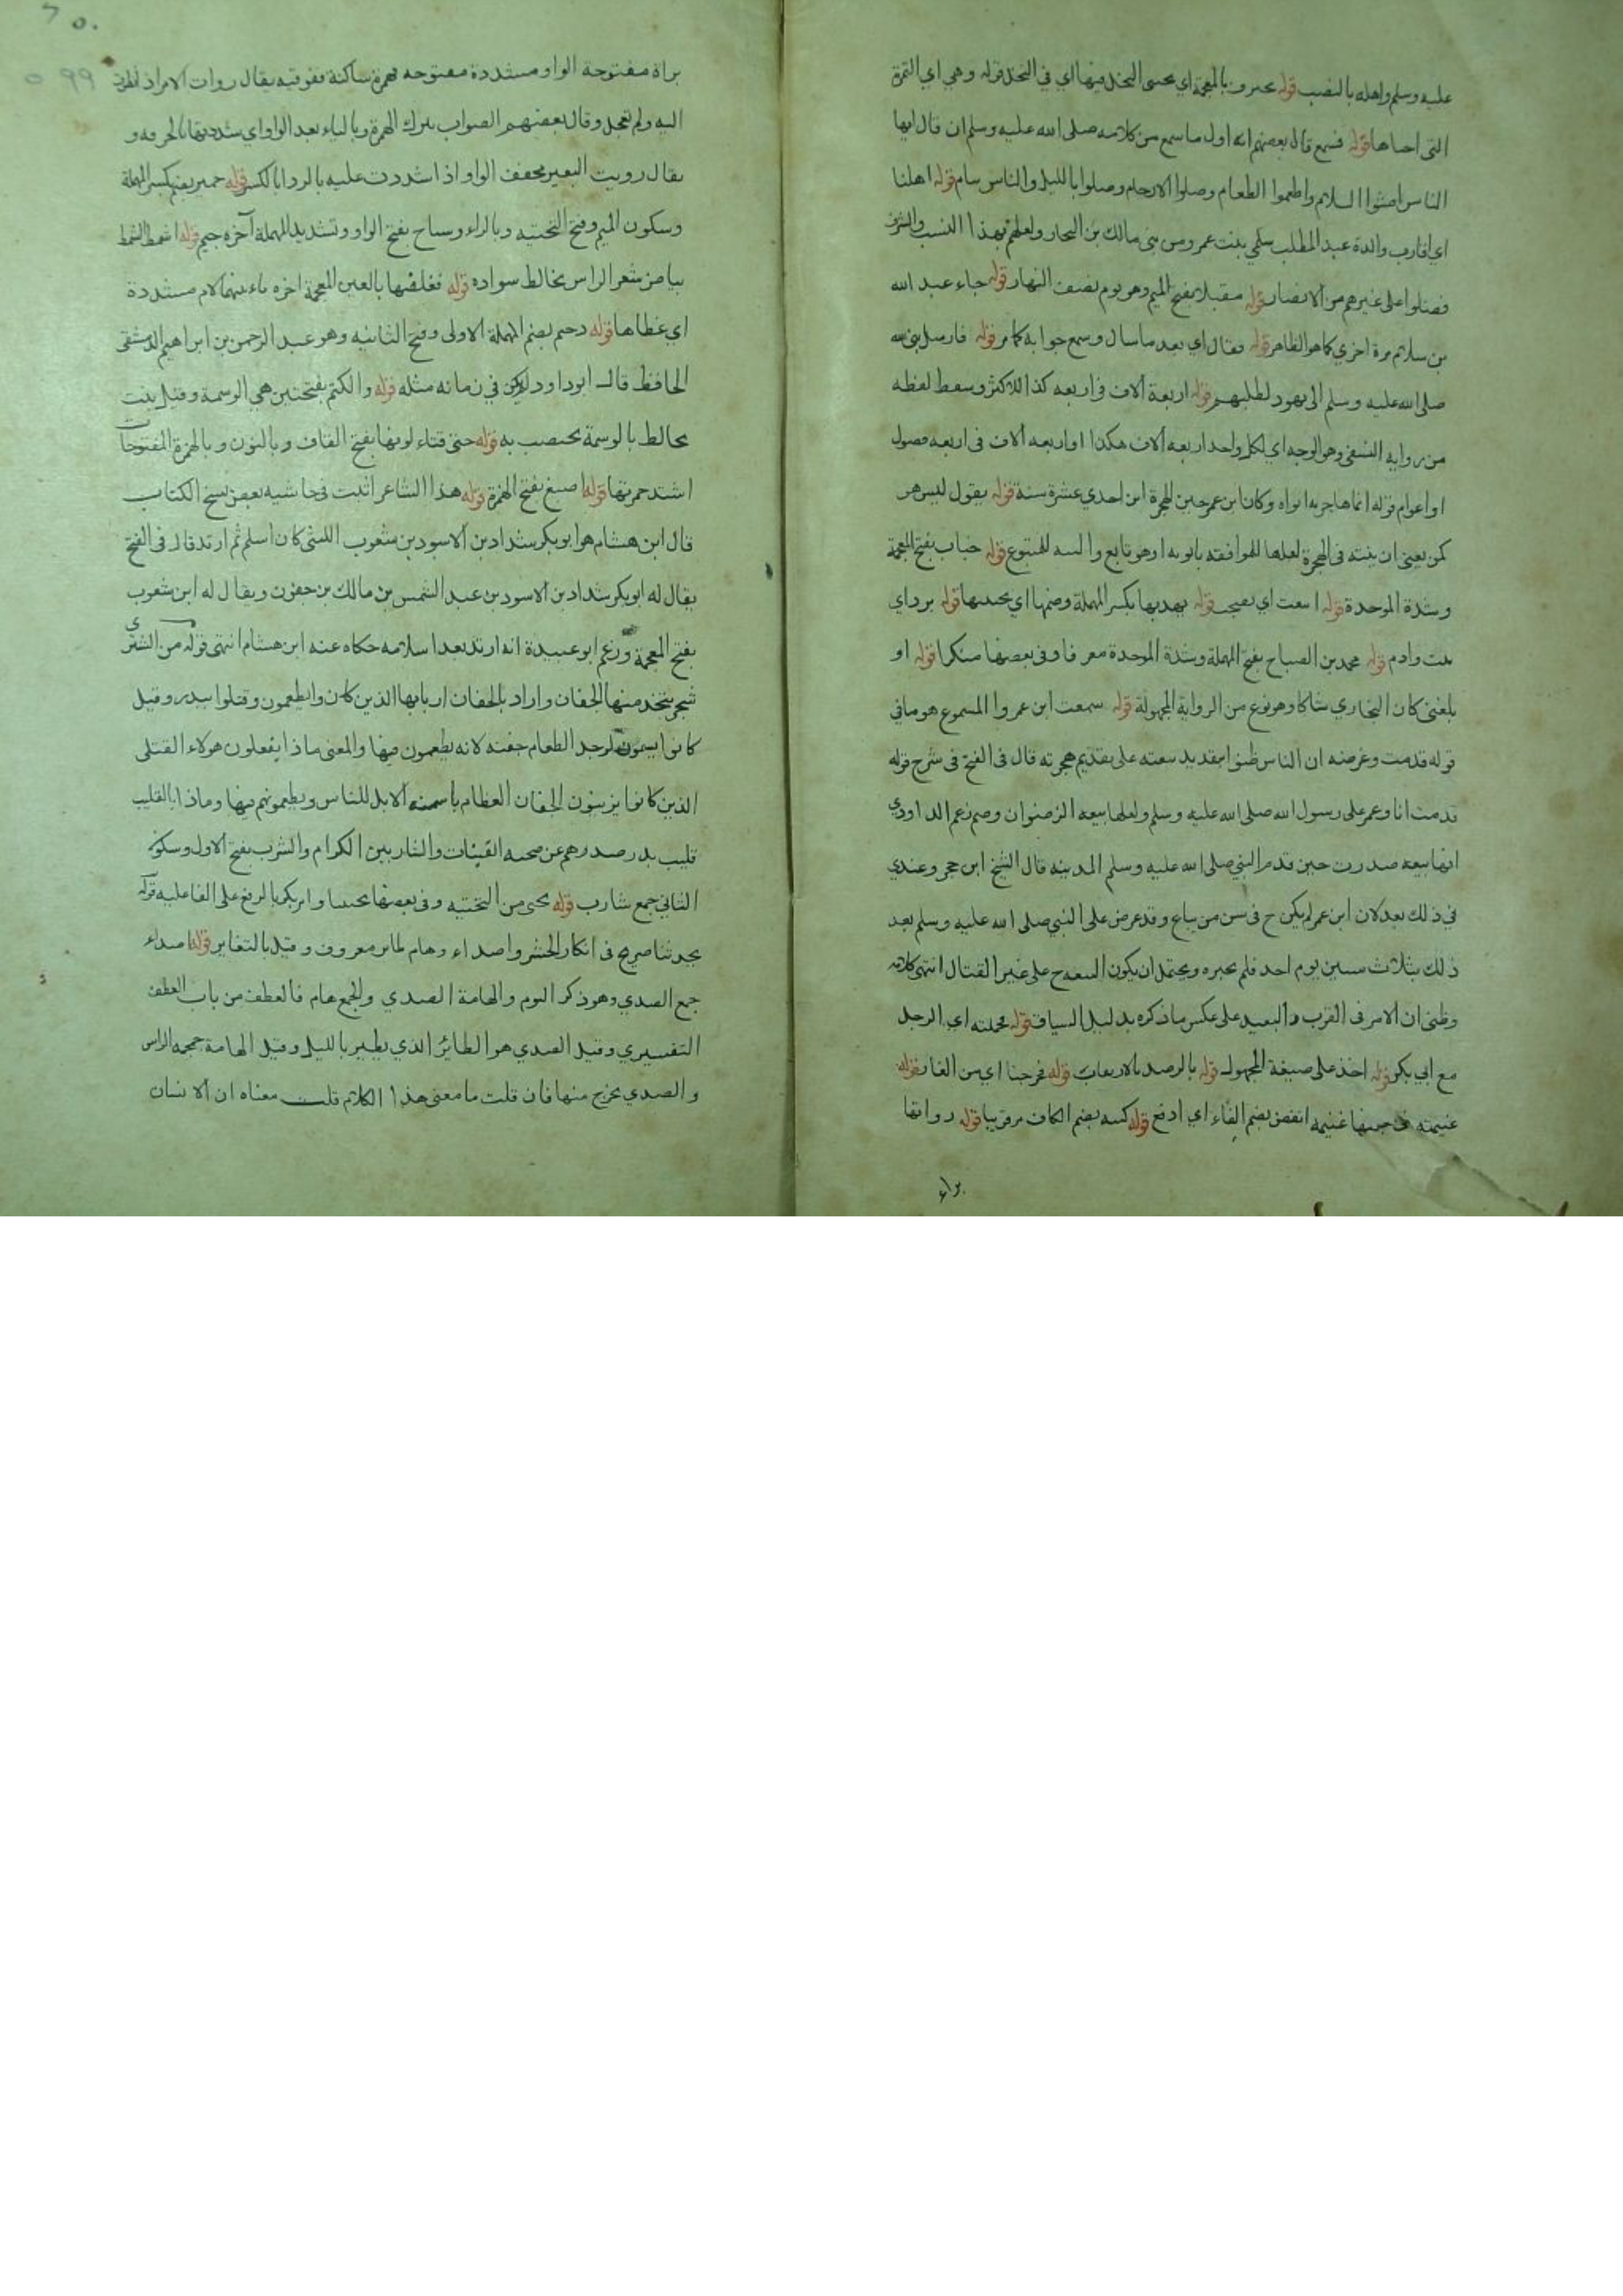 عليه وسلم واهله بالنصب قوله يخترف بالمعجمة اي يجتني النخل فيها اي في النخل قوله وهي اي التمرة
التي اجتناها قوله فسمع قال بعضهم انه اول ما سمع من كلامه صلى الله عليه وسلم ان قال ايها
الناس افشوا السلام واطعموا الطعام وصلوا الارحام وصلوا بالليل والناس نيام قوله اهلنا
اي اقارب والدة عبد المطلب سلمى بنت عمرو من بني مالك بن النجار ولعلهم بهذا النسب والشرف
فضلوا على غيرهم من الانصار قوله مقيلا بفتح الميم وهو نوم نصف النهار قوله جاء عبد الله
بن سلام مرة اخري كما هو الظاهر قوله فقال اي بعد ما سال وسمع جوابه كما مر قوله فارسل نبي الله
صلى الله عليه وسلم الى يهود لطلبهم قوله اربعة الاف في اربعه كذا للاكثر وسقط لفظه
من روايه النسفي وهو الوجه اي لكل واحد اربعه الاف هكذا او اربعه الاف في اربعه فصول
او اعوام قوله انما هاجر به ابواه وكان ابن عمر حين الهجرة ابن احدي عشرة سنة قوله يقول ليس هو
كمن يعني ان نيته في الهجرة لعلها للموافقه بابويه اذ هو تابع والنيه للمتبوع قوله خباب بفتح المعجمة
وشدة الموحدة قوله اينعت اي نضجت قوله يهدبها بكسر المهملة وضمها اي يجنيها قوله برد اي
ثبت ودام قوله محمد بن الصباح بفتح المهملة وشدة الموحدة معرفا وفي بعضها منكرا قوله او
بلغني كان البخاري شاكا وهو نوع من الرواية المجهولة قوله سمعت ابن عمر والمسموع هو ما في
قوله قدمت وغرضه ان الناس ظنوا تقديم بيعته على تقديم هجرته قال في الفتح في شرح قوله
قدمت انا وعمر على رسول الله صلى الله عليه وسلم ولعلها بيعه الرضوان وزعم الداودي
انها بيعه صدرت حين قدم النبي صلى الله عليه وسلم المدينه قال الشيخ ابن حجر وعندي
في ذلك بعد لان ابن عمر لم يكن ح في سن من يبايع وقد عرض على النبي صلى الله عليه وسلم بعد
ذلك بثلاث سنين يوم احد فلم يجزه ويحتمل ان يكون البيعه ح على غير القتال انتهى كلامه
وظني ان الامر في القرب والبعيد على عكس ما ذكره بدليل السياق قوله محملته اي الرجل
مع ابي بكر قوله اخذ على صيغة المجهول قوله بالرصد بالارتقاب قوله فخرجنا اي من الغار قوله
غنيمته في بعضها غنيمه انفض بضم الفاء اي ادفع قوله كثبه بضم الكاف مر قريبا قوله رواتها
براه
براة مفتوحة الواو مشددة مفتوحه فهمزة ساكنة ففوقيه يقال روات الامر اذا نظرت
اليه ولم تعجل وقال بعضهم الصواب بترك الهمزة وبالياء بعد الواو اي شددتها بالخرقه و
يقال رويت البعير مخفف الواو اذا شددت عليه بالردا بالكسر قوله حمير بضم كسر المهملة
وسكون الميم وفتح التحتيه وبالراء وساح بفتح الواو وتشديد المهملة آخره جيم قوله اشمط الشمط
بياض شعر الراس يخالط سواده قوله فغلفها بالغين المعجمة اخره فاء بينهما لام مشددة
اي غطاها قوله دحيم بضم المهملة الاولى وفتح الثانيه وهو عبد الرحمن بن ابراهيم الدمشقي
الحافظ قال ابوداود لم يكن في زمانه مثله قوله والكتم بفتحتين هي الوسمة وقيل بنت
يخالط بالوسمة يختضب به قوله حتى قناء لونها بفتح القاف وبالنون وبالهمزة المفتوحات
اشتد حمرتها قوله اصبغ بفتح الهمزة قوله هذا الشاعر اثبت في حاشيه بعض نسخ الكتاب
قال ابن هشام هو ابوبكر شداد بن الاسود بن شعوب الليثي كان اسلم ثم ارتد قال في الفتح
يقال له ابوبكر شداد بن الاسود بن عبد الشمس بن مالك بن جعون ويقال له ابن شعوب
بفتح المعجمة وزعم ابو عبيدة انه ارتد بعد اسلامه حكاه عنه ابن هشام انتهى قوله من الشيزى
شجر يتخذ منها الجفان واراد بالجفان اربابها الذين كانوا يطعمون وقتلوا ببدر وقيل
كانوا يسمون الرجل الطعام جفنه لانه يطعمون فيها والمعنى ماذا يفعلون هولاء القتلى
الذين كانوا يزينون الجفان العظام باسمنه الابل للناس ويطعمونهم فيها وماذا بالقليب
قليب بدر صدرهم عن صحبه القينات والشاربين الكرام والشرب بفتح الاول وسكون
الثاني جمع شارب قوله تحيى من التحتيه وفي بعضها تحيينا وام بكر بالرفع على الفاعليه قوله
يحدثنا صريح في انكار الحشر واصداء وهام لما بر معروف وقيل بالتغاير قوله اصداء
جمع الصدي وهو ذكر البوم والهامة الصدي والجمع هام فالعطف من باب العطف
التفسيري وقيل الصدي هو الطائر الذي يطير بالليل وقيل الهامة جمجمه الراس
والصدي يخرج منها فان قلت ما معنى هذا الكلام قلت معناه ان الانسان